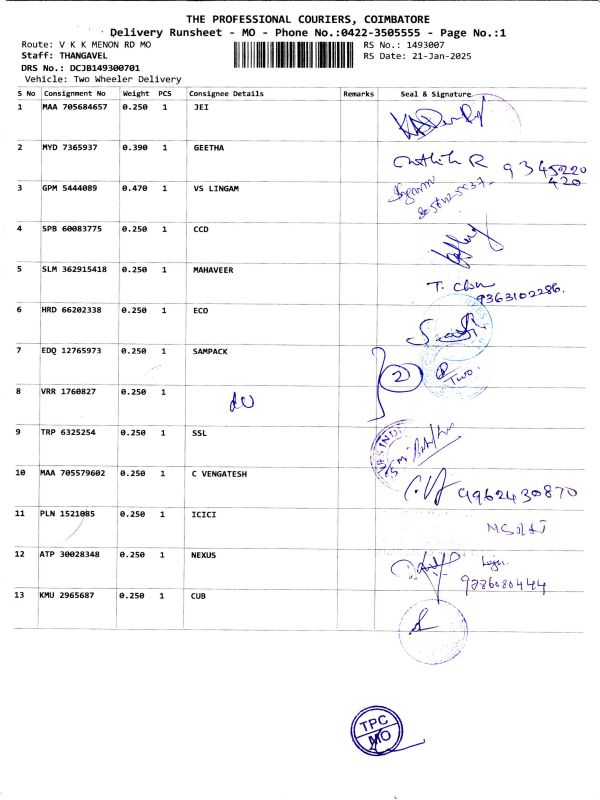 THE PROFESSIONAL COURIERS, COIMBATORE
Delivery Runsheet - MO - Phone No.:0422-3505555 - Page No.:1
Route: V K K MENON RD MO
RS No.: 1493007
Staff: THANGAVEL
RS Date: 21-Jan-2025
DRS No.: DCJB149300701
Vehicle: Two Wheeler Delivery
S No Consignment No Weight PCS Consignee Details Remarks Seal & Signature
1 MAA 705684657 0.250 1 JEI
2 MYD 7365937 0.390 1 GEETHA
R 9345020
420
3 GPM 5444089 0.470 1 VS LINGAM
4 SPB 60083775 0.250 1 CCD
5 SLM 362915418 0.250 1 MAHAVEER
T.
9363102286.
6 HRD 66202338 0.250 1 ECO
7 EDQ 12765973 0.250 1 SAMPACK
2
Two.
8 VRR 1760827 0.250 1 do
9 TRP 6325254 0.250 1 SSL
10 MAA 705579602 0.250 1 C VENGATESH
9962430870
11 PLN 1521085 0.250 1 ICICI
12 ATP 30028348 0.250 1 NEXUS
13 KMU 2965687 0.250 1 CUB
TPC
MO